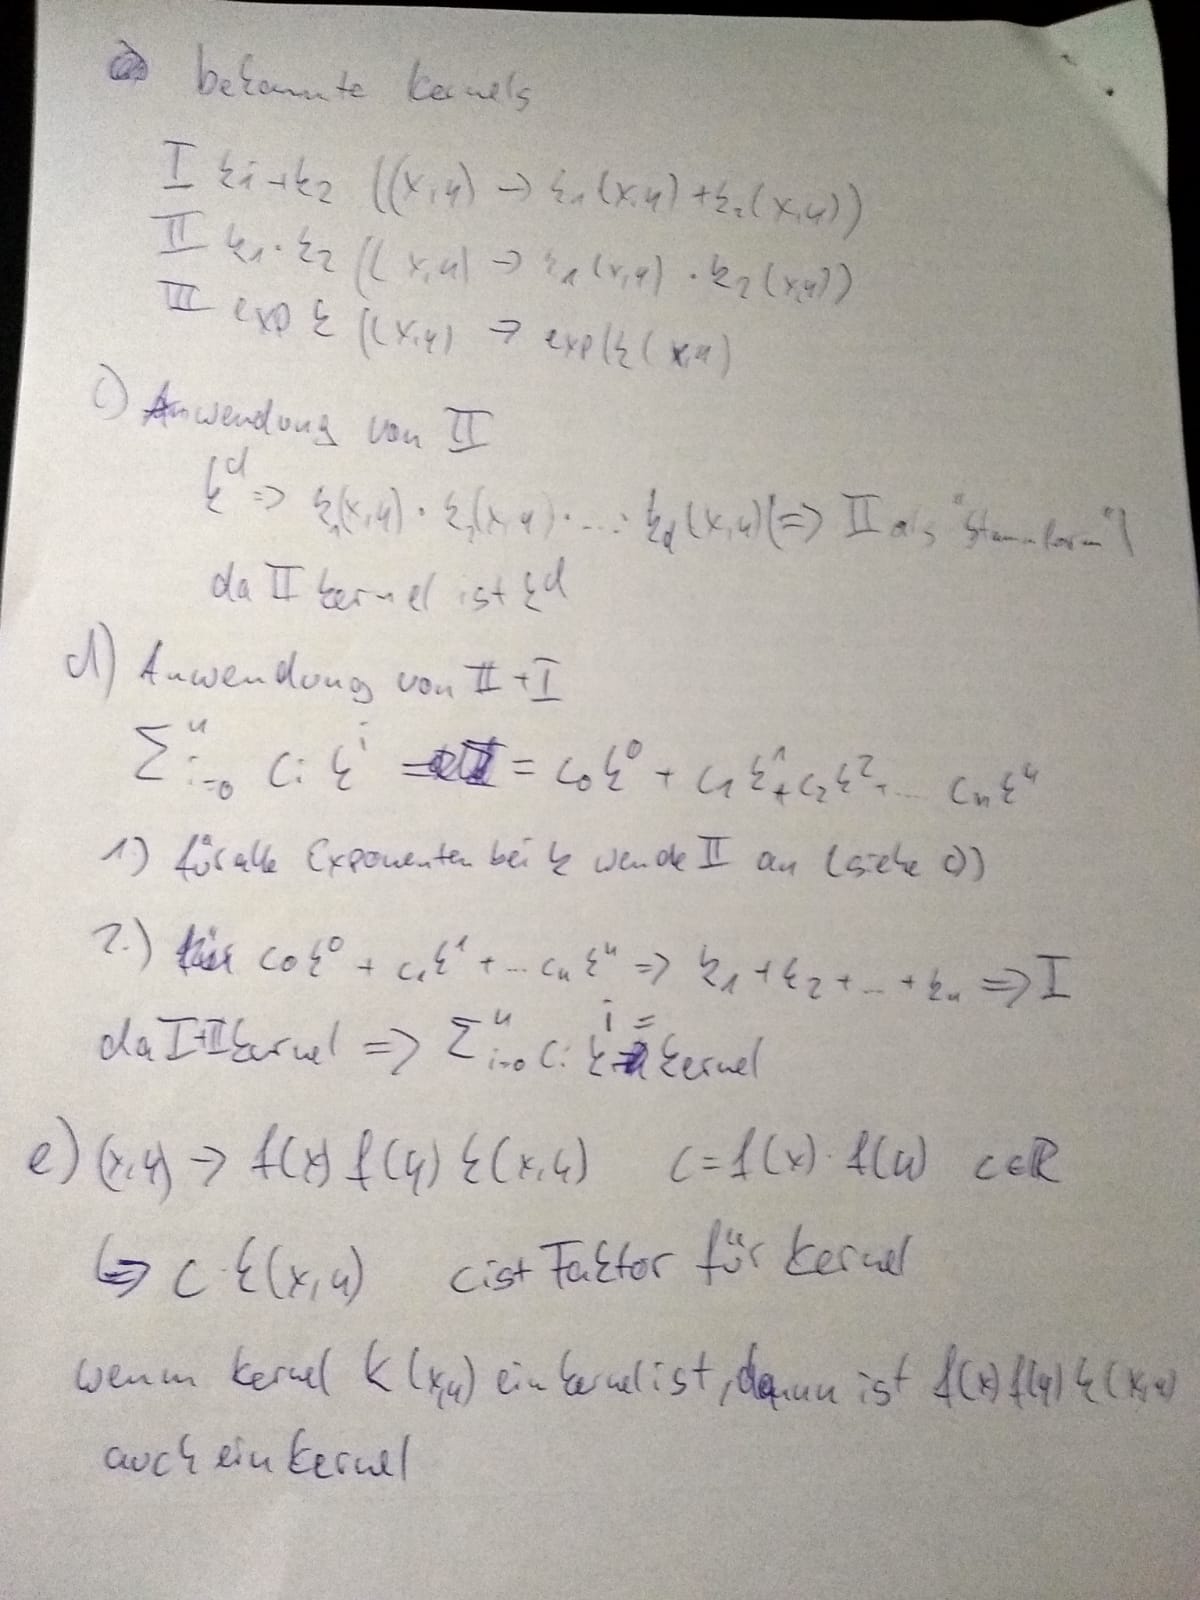 bekannte kernels
I k1+k2 ((x,y) → k1(x,y)+k2(x,y))
II k1·k2 ((x,y) → k1(x,y) · k2(x,y))
III exp k ((x,y) → exp(k(x,y)
c) Anwendung von II
k^d => k1(x,y) · k2(x,y) · ... · kd(x,y) (=> II als "Stammform")
da II kernel ist k^d
d) Anwendung von II + I
Σ^n i=0 ci k^i = c0k^0 + c1k^1 + c2k^2 + ... cnk^n
1.) für alle Exponenten bei k wende II an (siehe c))
2.) für c0k^0 + c1k^1 + ... cnk^n => k1 + k2 + ... + kn => I
da I+II kernel => Σ^n i=0 ci k^i = kernel
e) (x,y) → f(x) f(y) k(x,y) c = f(x) · f(y) c∈R
=> c · k(x,y) c ist Faktor für kernel
wenn kernel k(x,y) ein kernel ist, dann ist f(x) f(y) k(x,y)
auch ein kernel